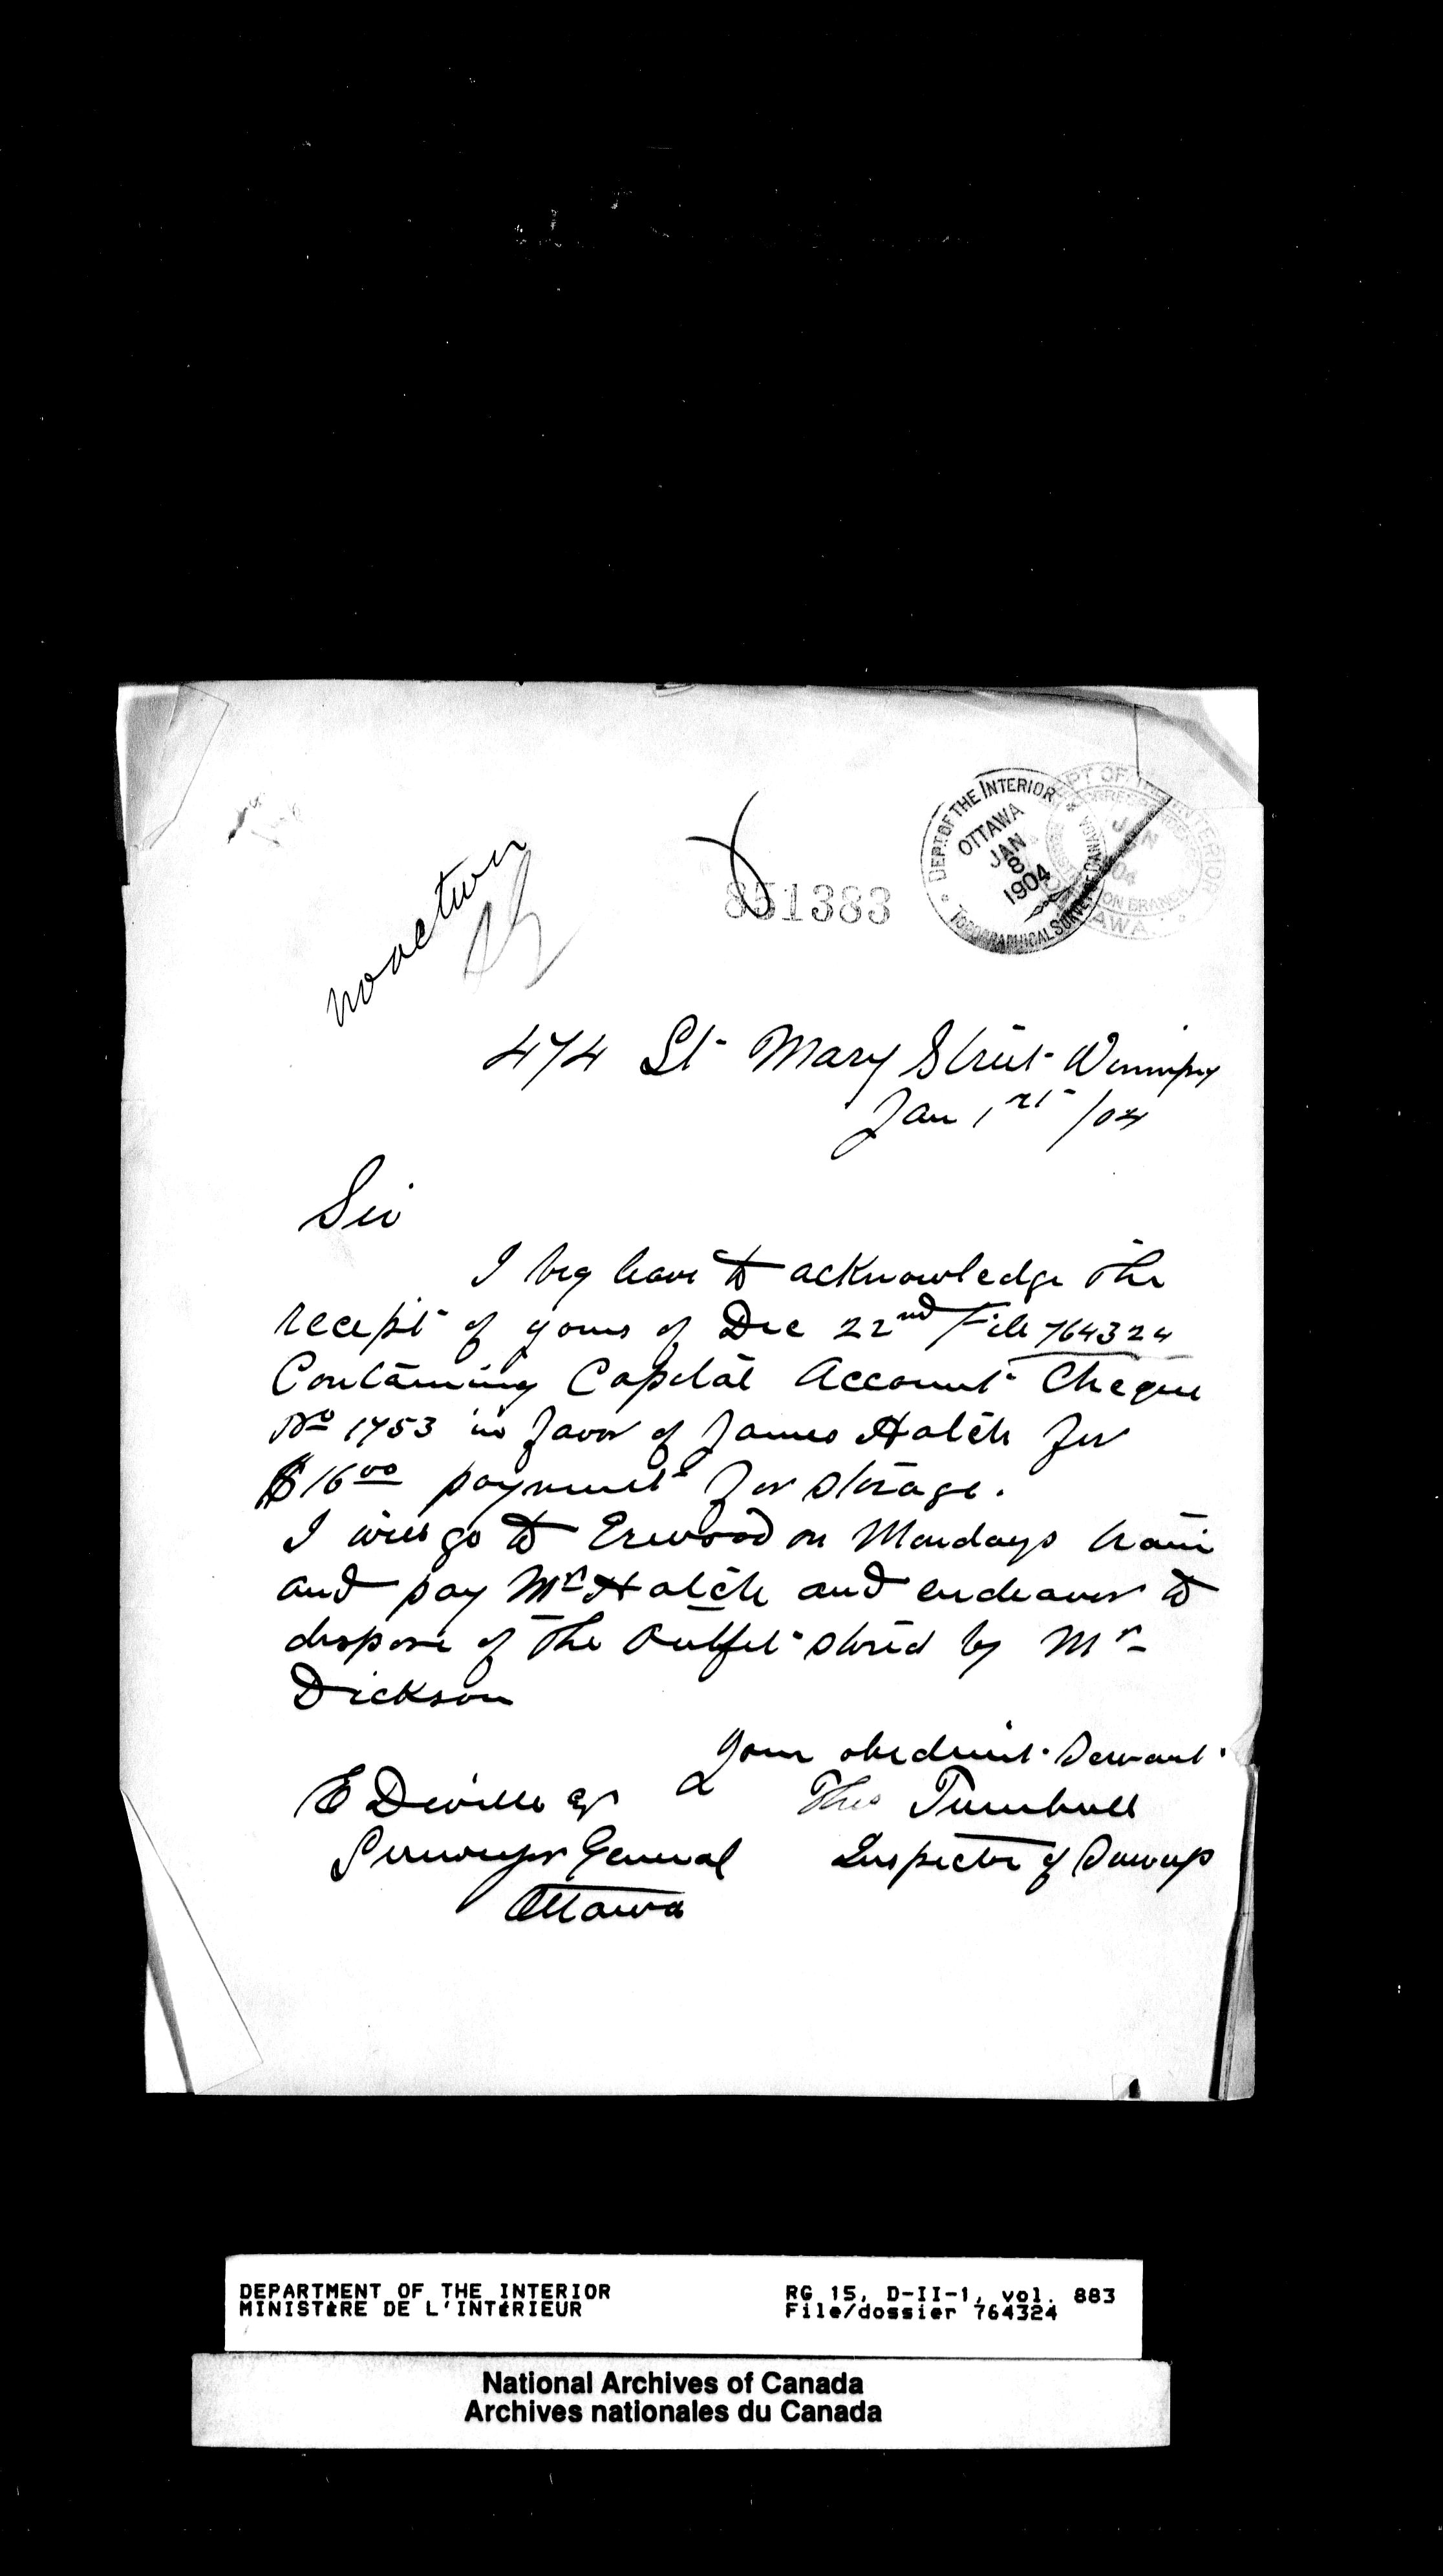 no action
851383
DEPT. OF THE INTERIOR
OTTAWA
JAN
8
1904
TOPOGRAPHICAL SURVEY OF CANADA
474 St Mary Street Winnipeg
Jan 1rst /04
Sir
I beg leave to acknowledge the
receipt of yours of Dec 22nd File 764324
Containing Capital Account Cheque
No 1753 in favor of James Hatch for
$16 00 payment for storage.
I will go to Erwood on Mondays train
and pay Mr Hatch and endeavor to
dispose of the Outfit stored by Mr
Dickson
Your obedient Servant
E Deville Esq
Thos Turnbull
Surveyor General
Inspector of Surveys
Ottawa
DEPARTMENT OF THE INTERIOR
MINISTÈRE DE L'INTÉRIEUR
RG 15, D-II-1, vol. 883
File/dossier 764324
National Archives of Canada
Archives nationales du Canada